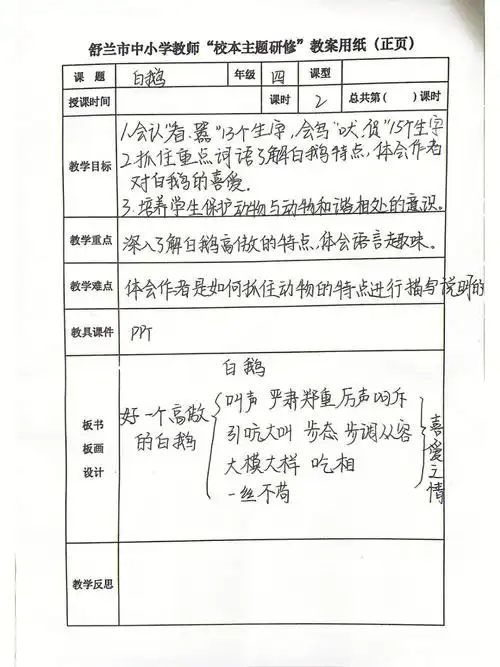 舒兰市中小学教师“校本主题研修”教案用纸（正页）
课题 白鹅 年级 四 课型
授课时间 课时 2 总共第（ ）课时
教学目标
1.会认“看、嚣”13个生字,会写“吠、促”15个生字
2.抓住重点词语了解白鹅特点,体会作者
对白鹅的喜爱.
3.培养学生保护动物与动物和谐相处的意识。
教学重点 深入了解白鹅高傲的特点,体会语言趣味。
教学难点 体会作者是如何抓住动物的特点进行描写说明的
教具课件 PPT
板书
板画
设计
白鹅
好一个高傲
的白鹅
叫声 严肃郑重 厉声叫斥
引吭大叫 步态 步调从容
大模大样 吃相
一丝不苟
喜爱之情
教学反思